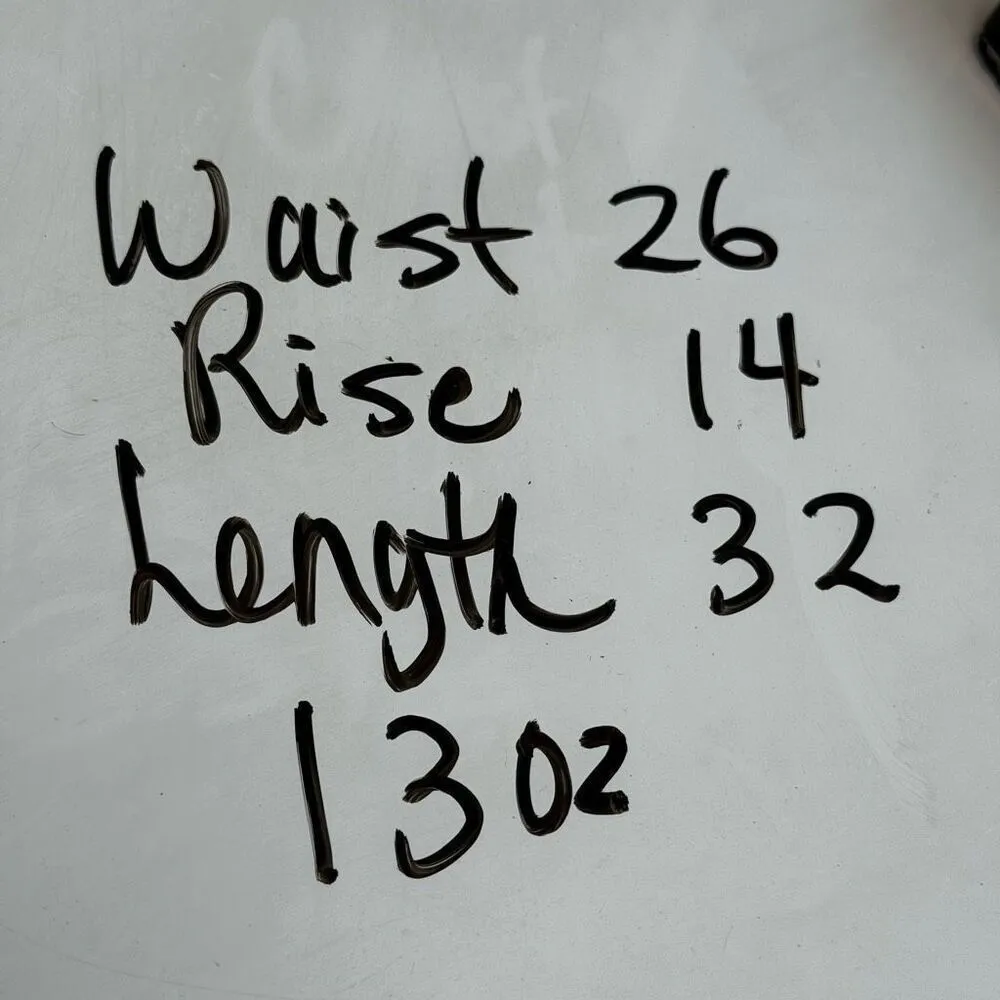 Waist 26
Rise 14
Length 32
13 oz